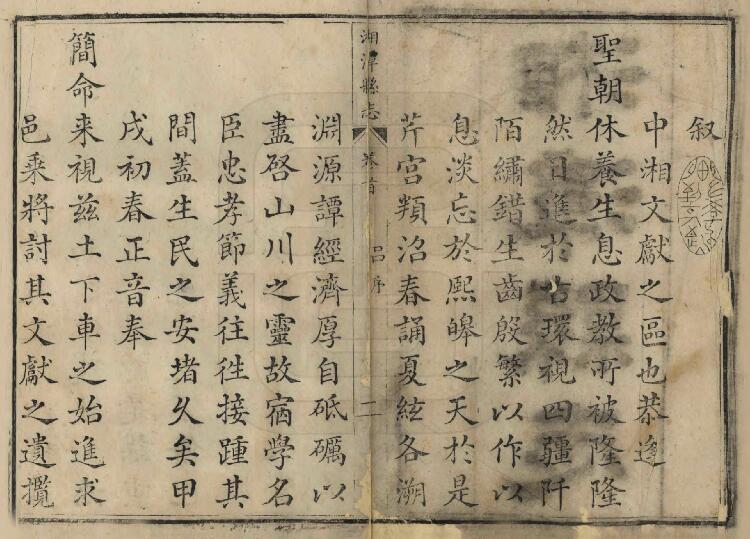 叙
中湘文獻之區也恭逢
聖朝休養生息政教所被隆隆
然日進於古環視四疆阡
陌繡錯生齒殷繁以作以
息淡忘於熙皞之天於是
湘潭縣志 卷首 吕序 二
芹宮類沿春誦夏絃各溯
淵源譚經濟厚自砥礪以
盡啓山川之靈故宿學名
臣忠孝節義往往接踵其
間蓋生民之安堵久矣甲
戌初春正音奉
簡命来視兹土下車之始進求
邑乘將討其文獻之遺攬